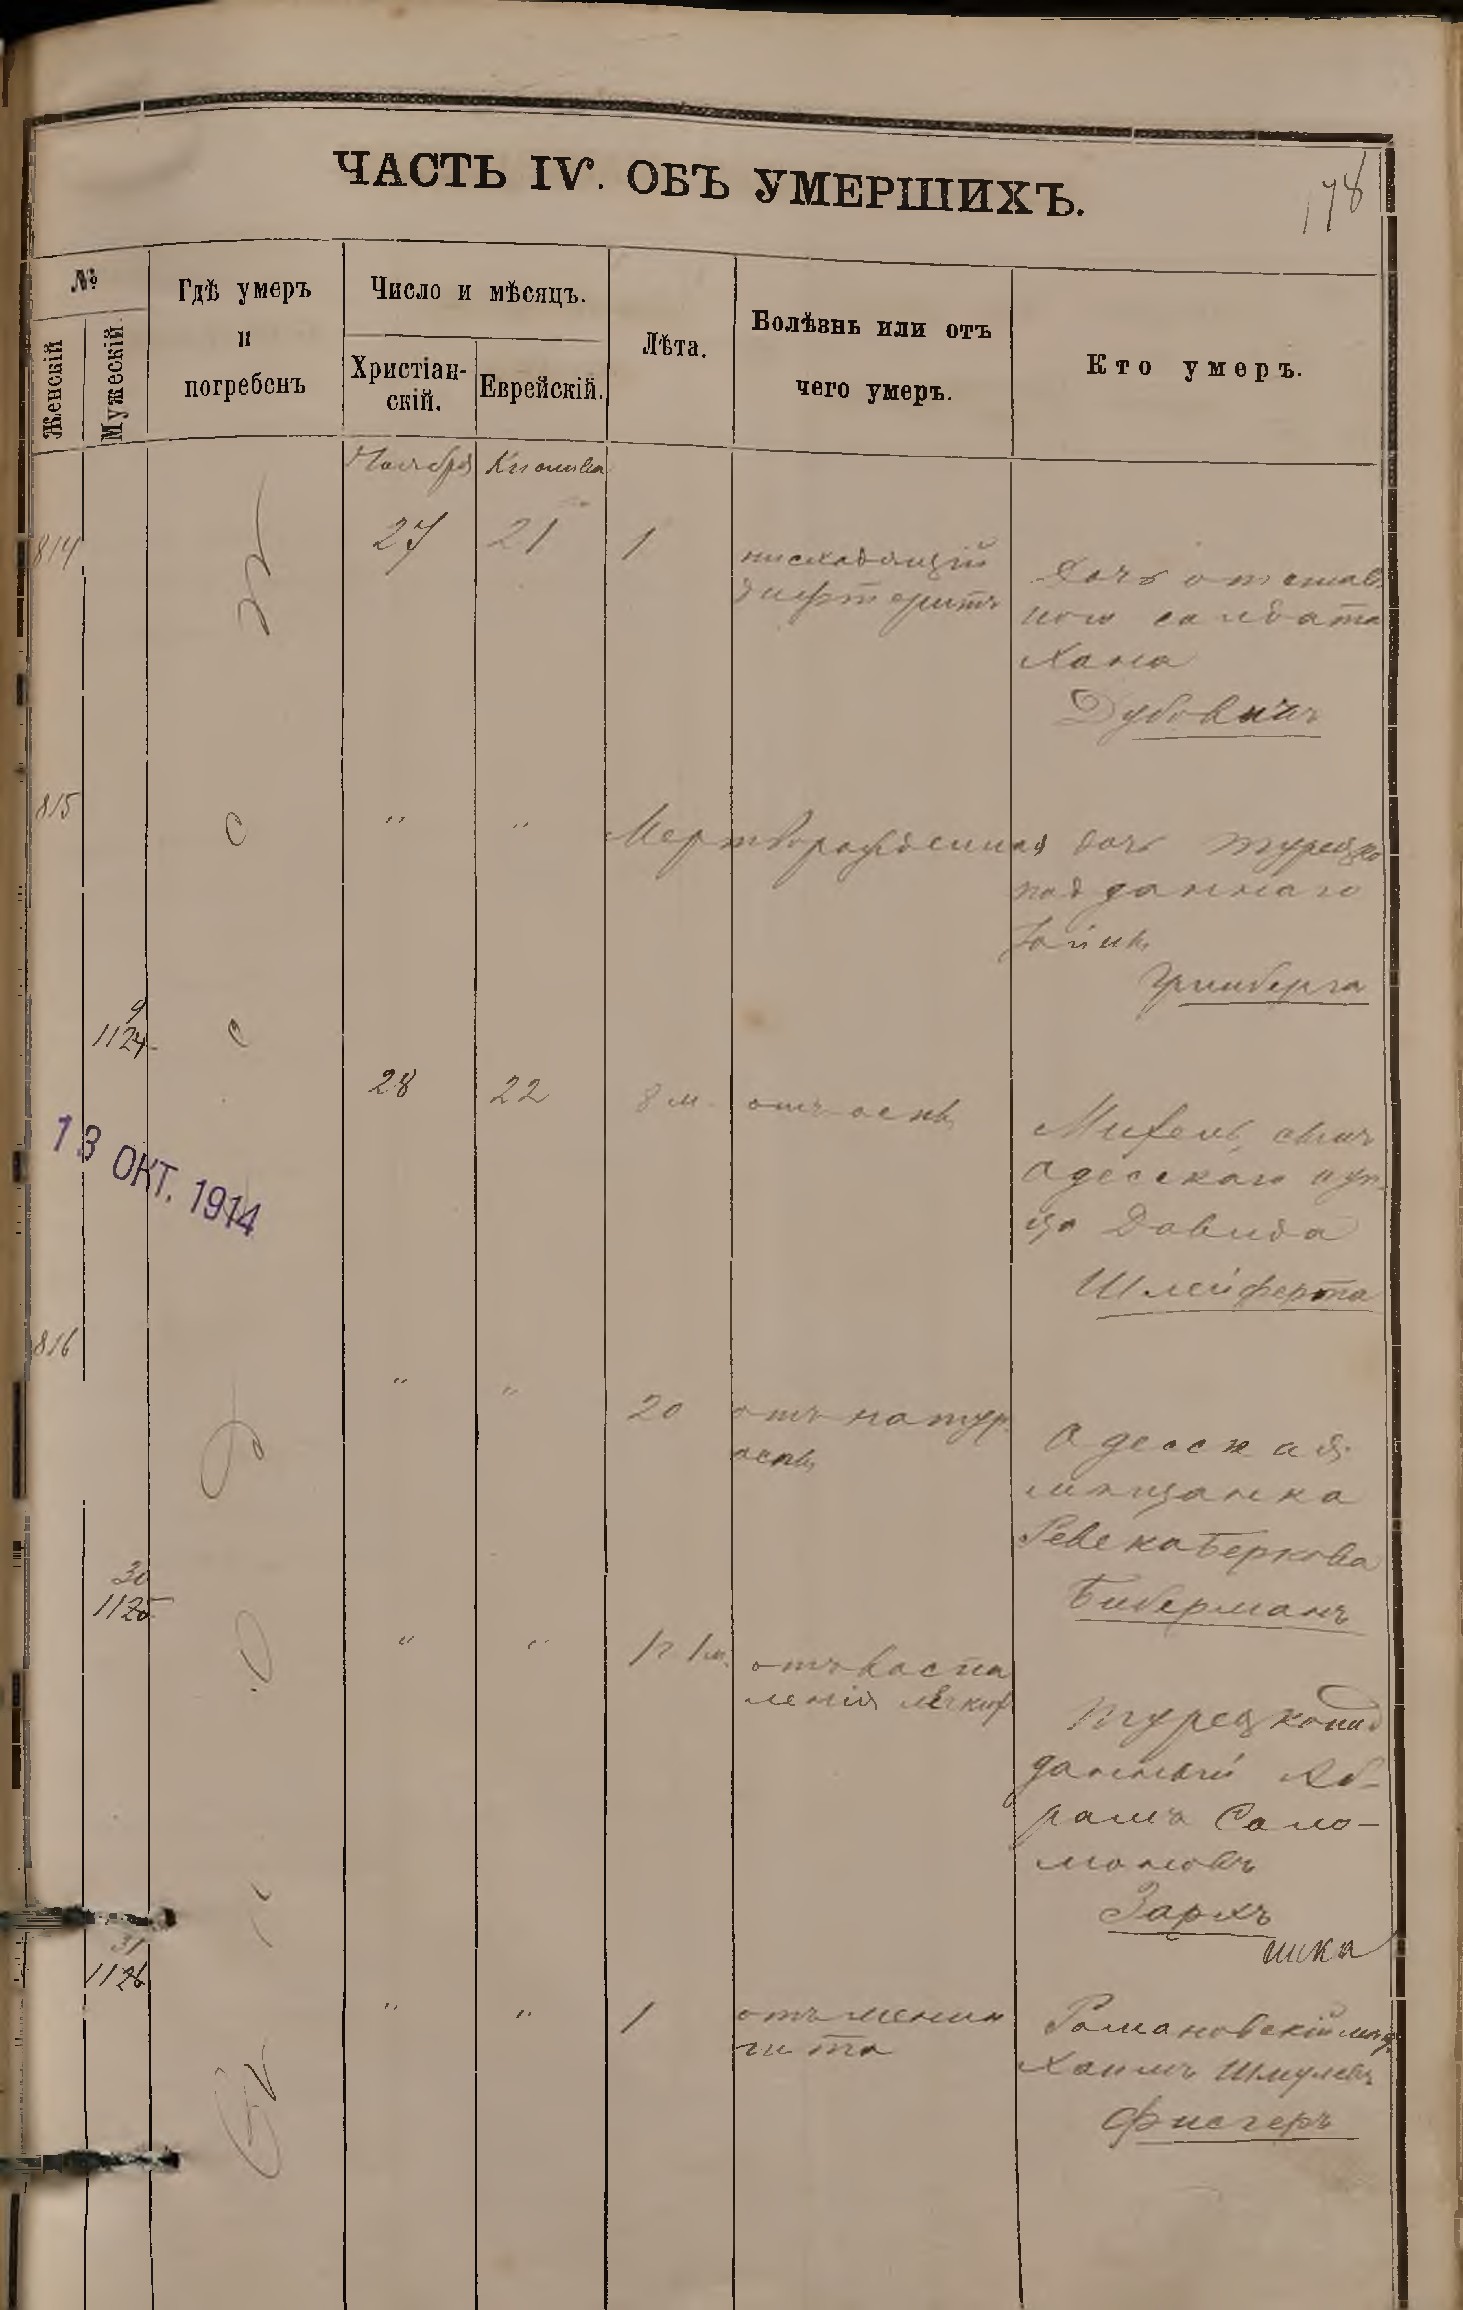 ЧАСТЬ IV. ОБЪ УМЕРШИХЪ.
178
№
Женскій
Мужескій
Гдѣ умеръ
и
погребенъ
Число и мѣсяцъ.
Христіан-
скій.
Еврейскій.
Лѣта.
Болѣзнь или отъ
чего умеръ.
Кто умеръ.
Ноября Кислива
814 27 21 1
нисходящій
дифтеритъ
Дочь отстав
ного солдата
Хана
Дубовичъ
815 " " Мертворожденная дочь турецко
подданнаго
Гринберга
9
1124
28 22 8 м. отъ оспы
Михель, сынъ
Одесскаго куп-
ца Давида
Шлейферта
13 ОКТ. 1914
816
" " 20 отъ натур.
оспы
Одесская
мѣщанка
Ревека Беркова
Биберманъ
30
1125
" " 1 г 1 м. отъ воспа
ленія легкихъ
Турецкопод
данный Аб-
рамъ Соло-
моновъ
Зархъ
шка
31
1126
" " 1 отъ менин
гита
Романовскій мѣщ.
Хаимъ Шмулевъ
Фисгеръ